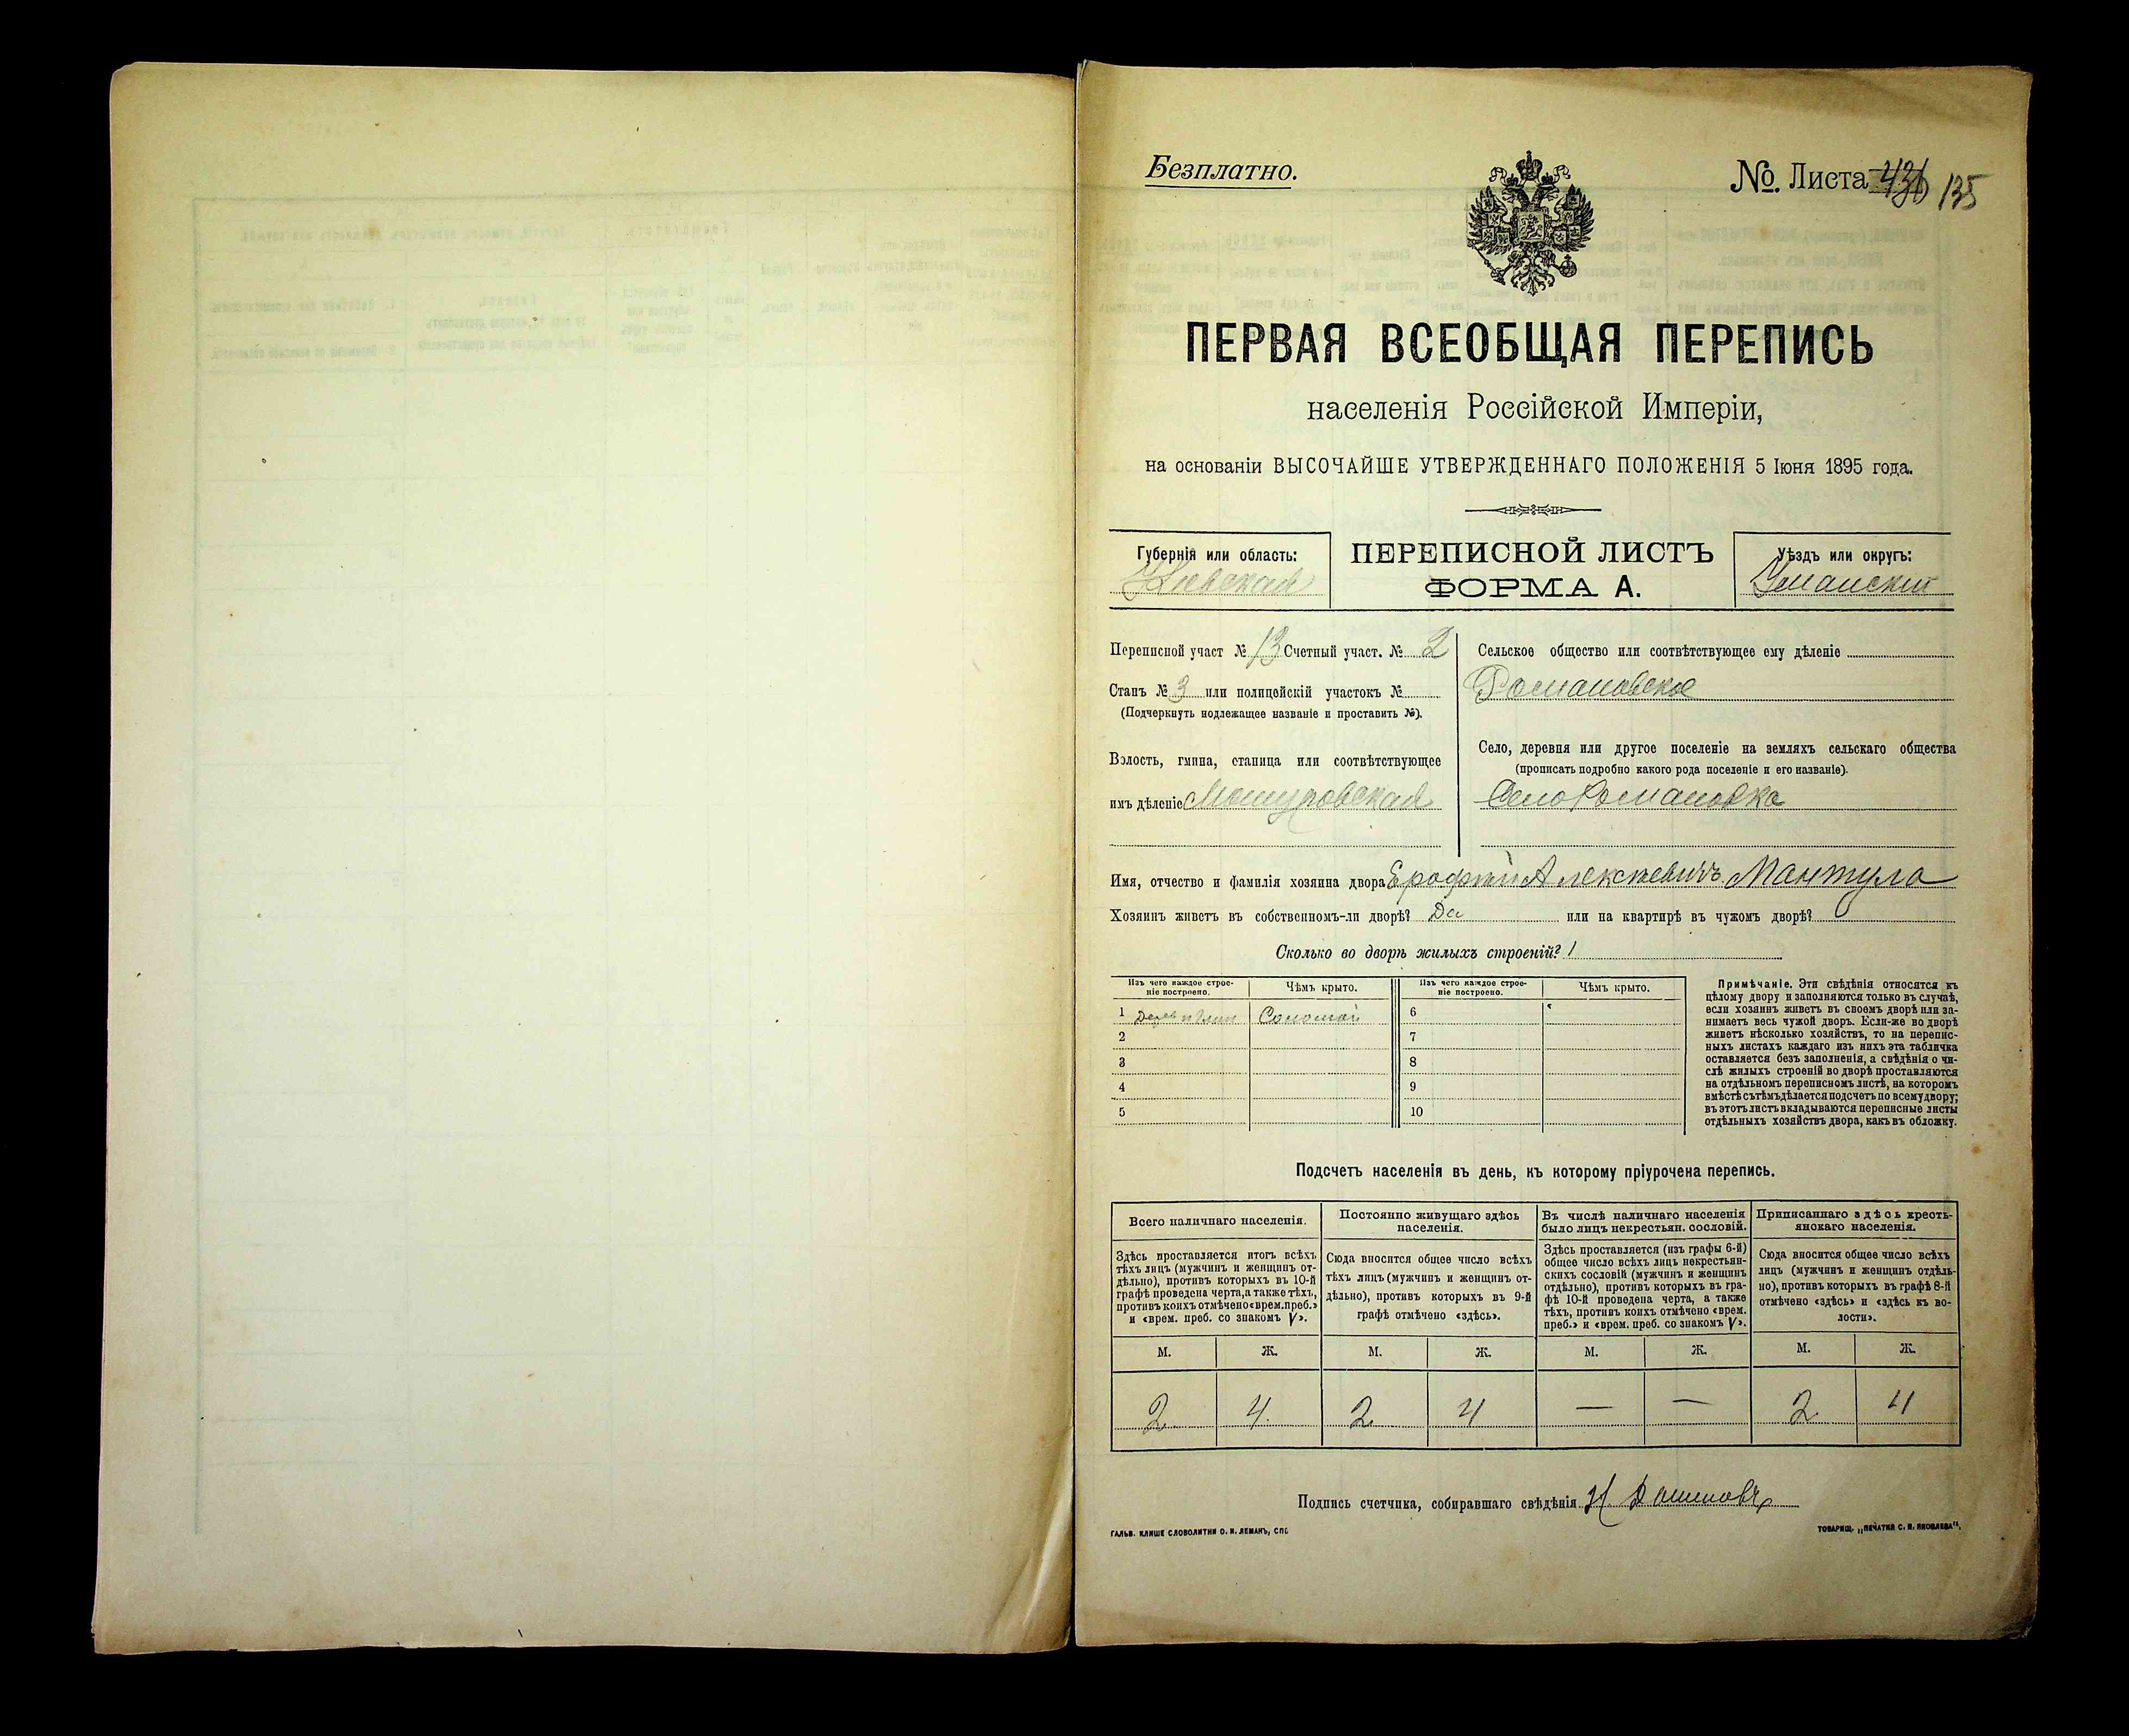 Безплатно.
№. Листа 135
ПЕРВАЯ ВСЕОБЩАЯ ПЕРЕПИСЬ
населенія Россійской Имперіи,
на основаніи ВЫСОЧАЙШЕ УТВЕРЖДЕННАГО ПОЛОЖЕНІЯ 5 Іюня 1895 года.
Губернія или область:
Кіевская
ПЕРЕПИСНОЙ ЛИСТЪ
ФОРМА А.
Уѣздъ или округъ:
Уманскій
Переписной участ № 13 Счетный участ. № 2
Станъ № 3 или полицейскій участокъ №
(Подчеркнуть подлежащее названіе и проставить №).
Волость, гмина, станица или соотвѣтствующее
имъ дѣленіе Мошуровская
Сельское общество или соотвѣтствующее ему дѣленіе
Романовское
Село, деревня или другое поселеніе на земляхъ сельскаго общества
(прописать подробно какого рода поселеніе и его названіе).
Село Романовка
Имя, отчество и фамилія хозяина двора Ерофѣй Алексѣевичъ Мантула
Хозяинъ живетъ въ собственномъ-ли дворѣ? Да или на квартирѣ въ чужомъ дворѣ?
Сколько во дворѣ жилыхъ строеній? 1
Изъ чего каждое строе-
ніе построено.
Чѣмъ крыто.
Изъ чего каждое строе-
ніе построено.
Чѣмъ крыто.
1 Дерев и глин Соломой 6
2 7
3 8
4 9
5 10
Примѣчаніе. Эти свѣдѣнія относятся къ
цѣлому двору и заполняются только въ случаѣ,
если хозяинъ живетъ въ своемъ дворѣ или за-
нимаетъ весь чужой дворъ. Если-же во дворѣ
живетъ нѣсколько хозяйствъ, то на перепис-
ныхъ листахъ каждаго изъ нихъ эта табличка
оставляется безъ заполненія, а свѣдѣнія о чи-
слѣ жилыхъ строеній во дворѣ проставляются
на отдѣльномъ переписномъ листѣ, на которомъ
вмѣстѣ съ тѣмъ дѣлается подсчетъ по всему двору;
въ этотъ листъ вкладываются переписные листы
отдѣльныхъ хозяйствъ двора, какъ въ обложку.
Подсчетъ населенія въ день, къ которому пріурочена перепись.
Всего наличнаго населенія.
Здѣсь проставляется итогъ всѣхъ
тѣхъ лицъ (мужчинъ и женщинъ от-
дѣльно), противъ которыхъ въ 10-й
графѣ проведена черта, а также тѣхъ,
противъ коихъ отмѣчено «врем. преб.»
и «врем. преб. со знакомъ V».
Постоянно живущаго здѣсь
населенія.
Сюда вносится общее число всѣхъ
тѣхъ лицъ (мужчинъ и женщинъ от-
дѣльно), противъ которыхъ въ 9-й
графѣ отмѣчено «здѣсь».
Въ числѣ наличнаго населенія
было лицъ некрестьян. сословій.
Здѣсь проставляется (изъ графы 6-й)
общее число всѣхъ лицъ некрестьян-
скихъ сословій (мужчинъ и женщинъ
отдѣльно), противъ которыхъ въ гра-
фѣ 10-й проведена черта, а также
тѣхъ, противъ коихъ отмѣчено «врем.
преб.» и «врем. преб. со знакомъ V».
Приписаннаго здѣсь кресть-
янскаго населенія.
Сюда вносится общее число всѣхъ
лицъ (мужчинъ и женщинъ отдѣль-
но), противъ которыхъ въ графѣ 8-й
отмѣчено «здѣсь» и «здѣсь къ во-
лости».
М. Ж. М. Ж. М. Ж. М. Ж.
2 4 2 4 — — 2 4
Подпись счетчика, собиравшаго свѣдѣнія
ГАЛЬВ. КЛИШЕ СЛОВОЛИТНИ О. И. ЛЕМАНЪ, СПБ
ТОВАРИЩ. „ПЕЧАТНЯ С. П. ЯКОВЛЕВА“.